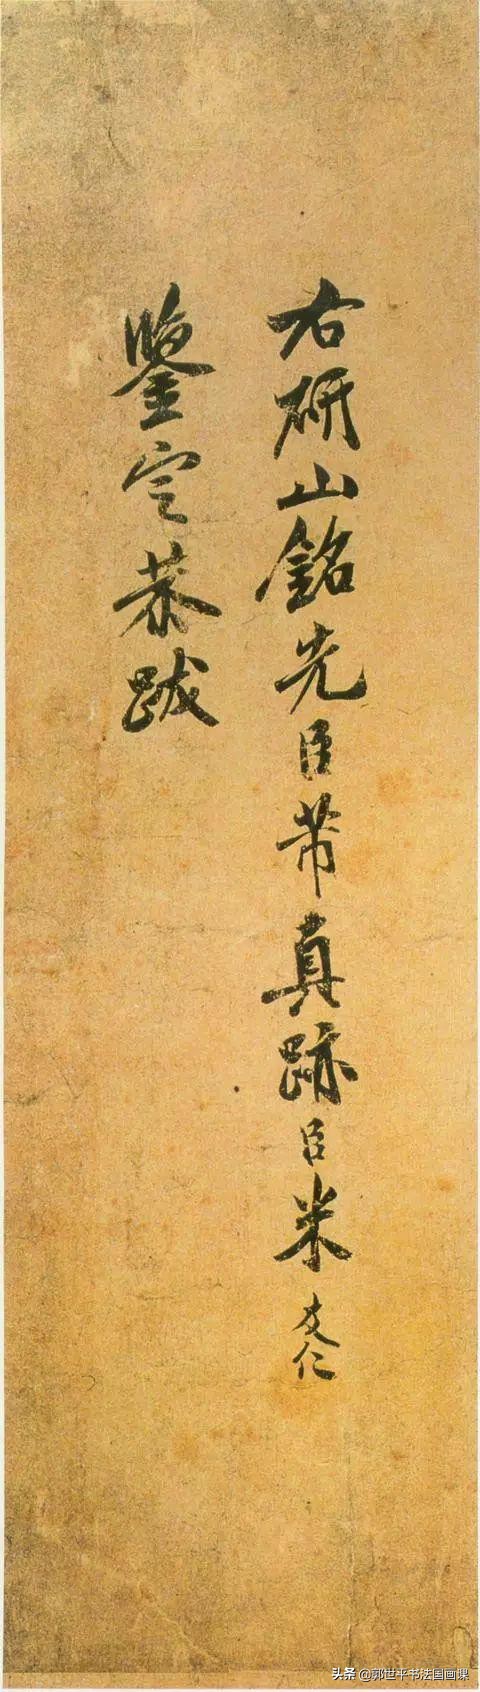 右研山銘先臣芾真跡臣米友仁
鑒定恭跋
头条 @郭世平书法国画课